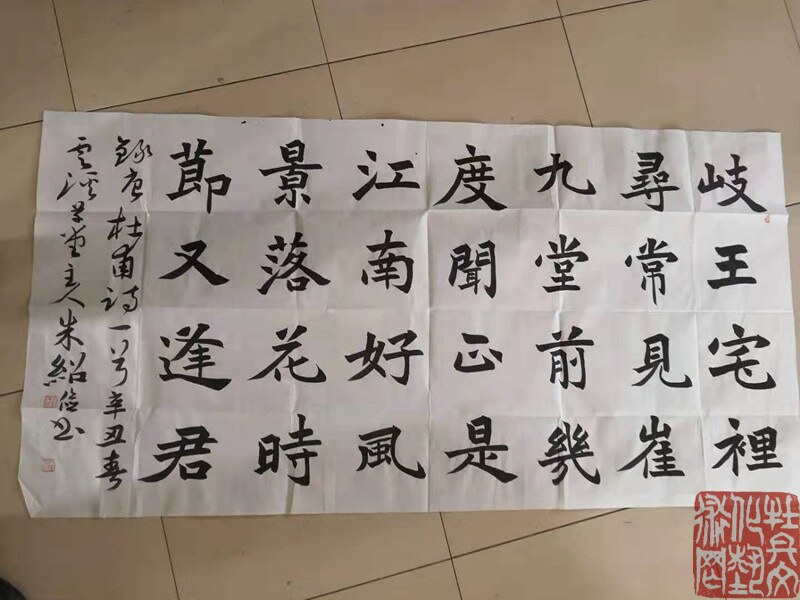 岐王宅裡
尋常見崔
九堂前幾
度聞正是
江南好風
景落花時
節又逢君
錄唐杜甫詩一首辛丑春
雲溪草堂主人朱紹书